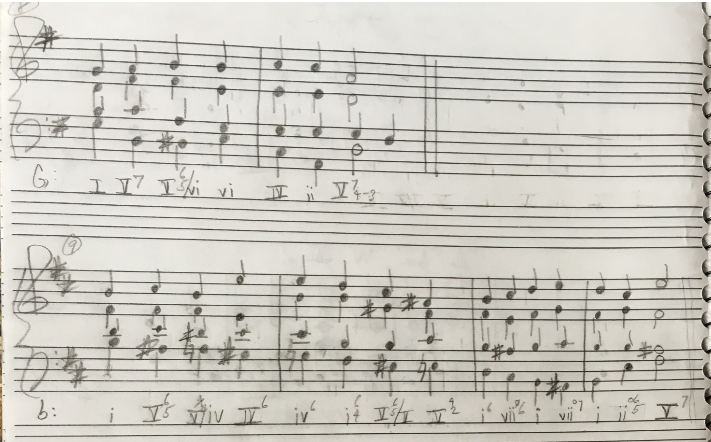 G: I V7 V6/5/vi vi IV ii V7 4-3
9
b: i V6/5 V4/2/iv IV6 iv6 i6/4 V6/5/V V4/2 i6 viio6 i viio7 i iiø6/5 V7